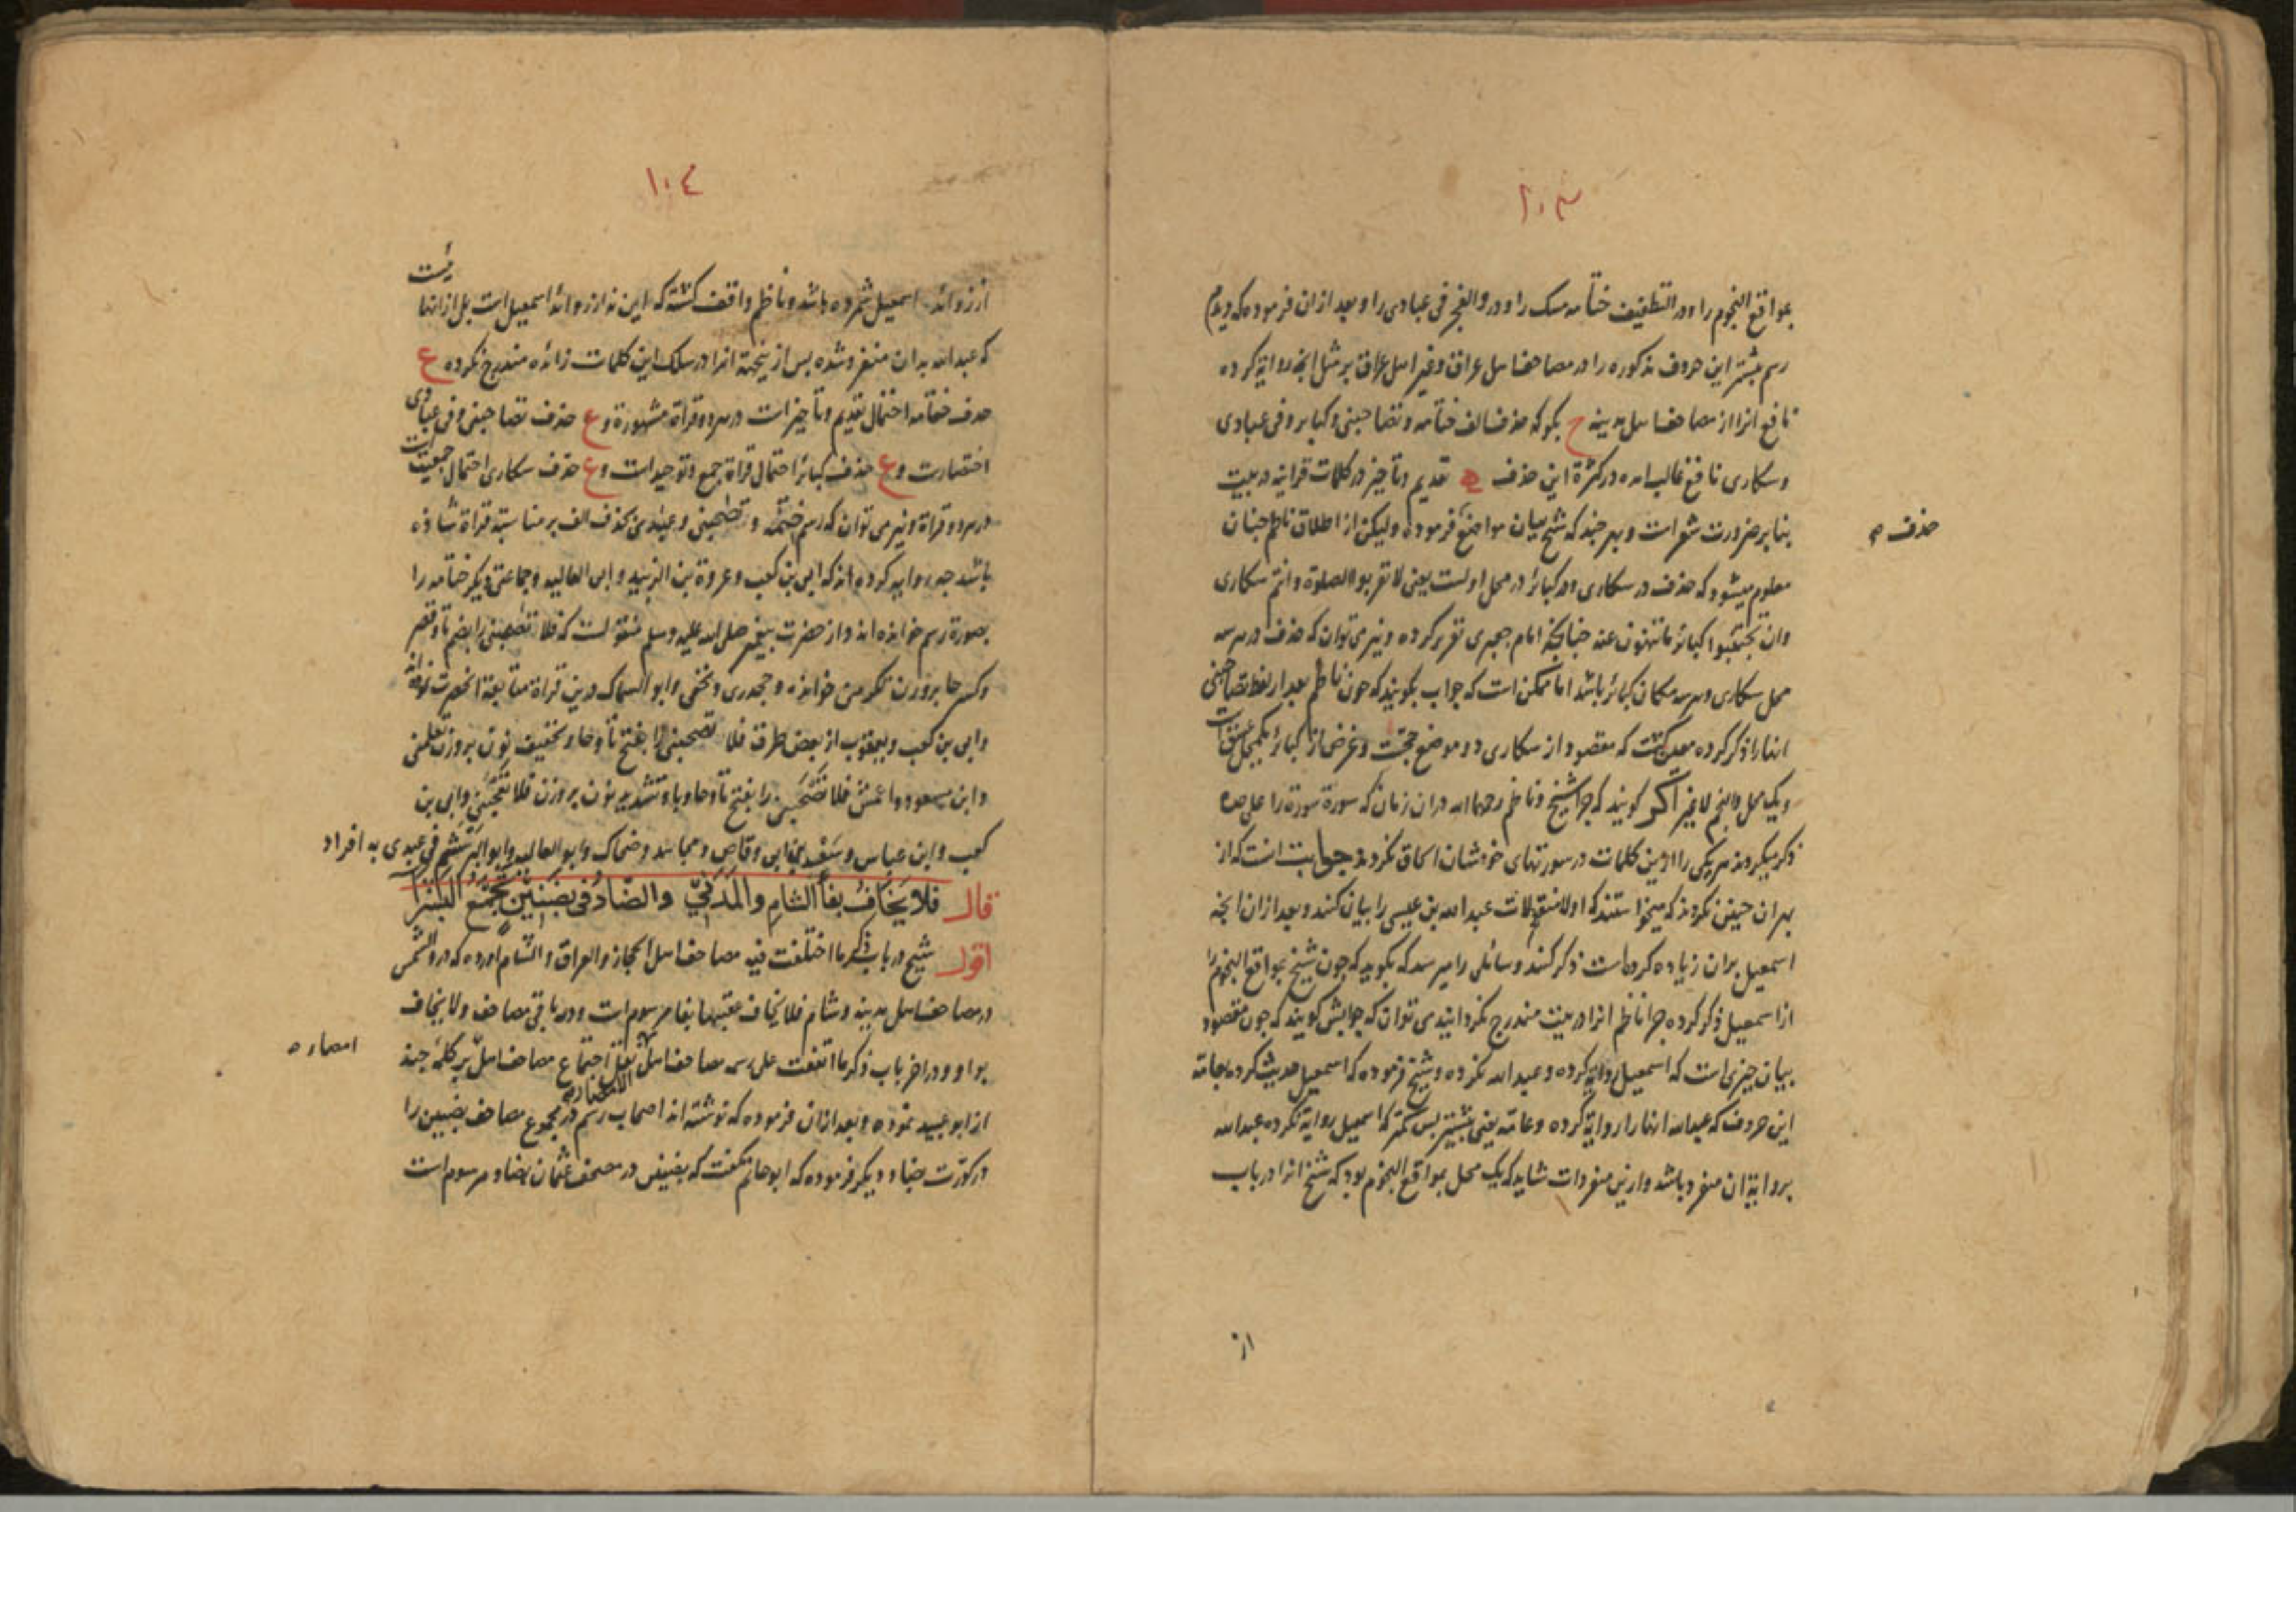 ١٠٣
بمواقع النجوم را و در التطفیف ختامه مسک را و در والفجر فی عبادی را و بعد ازان فرموده که دیدم
رسم بیشتر این حروف مذکوره را در مصاحف اهل عراق و غیر اهل عراق بر مثل انچه روایة کرده
نافع انرا از مصاحف اهل مدینه ح بگو که حذف الف ختامه و تصاحبنی و کبایر و فی عبادی
و سکاری نافع غالب امده در کثرة این حذف تقدیم و تأخیر در کلمات قرانیه در بیت
بنا بر ضرورت شعر است و هر چند که شیخ بیان مواضع فرموده ولیکن از اطلاق ناظم چنان
حذف
معلوم میشود که حذف در سکاری و در کبائر در محل اولست یعنی لا تقربوا الصلوة و انتم سکاری
وان تجتنبوا کبائر ما تنهون عنه چنانچه امام جعبری تقریر کرده و نیز می توان که حذف در هر سه
محل سکاری و هر سه مکان کبائر باشد اما ممکن است که جواب بگویند که چون ناظم بعد از لفظ تصاحبنی
انها را ذکر کرده معین گشت که مقصود از سکاری دو موضع حجست و غرض از کبائر
و یک محل والنجم لا غیر اکر گویند که چرا شیخ و ناظم رحمهما الله دران زمان که سورة سورة را علی حده
ذکر میکردند هر یکی را ازین کلمات در سورتهای خودشان الحاق نکردند جوابت انست که از
بهر ان چنین نکردند که میخواستند که اولا منقولات عبد الله بن عیسی را بیان کنند و بعد ازان انچه
اسمعیل بران زیاده کرده است ذکر کنند و سائلی را میرسد که بگوید که چون شیخ بمواقع النجوم را
از اسمعیل ذکر کرده چرا ناظم انرا در بیت مندرج نکردانید می توان که جوابش گویند که چون مقصود
بیان چیزی است که اسمعیل روایة کرده و عبد الله نکرده و شیخ فرموده که اسمعیل حدیث کرده بعامّه
این حروف که عبد الله انها را روایة کرده و عامه یعنی بیشتر پس کمتر که اسمعیل روایة نکرده عبد الله
بروایة ان منفرد باشد و ازین منفردات شاید که یک محل بمواقع النجوم بود که شیخ انرا در باب
از
١٠٤
از زوائد اسمعیل شمرده باشد و ناظم واقف کشته که این نه از زوائد اسمعیل است بل از انها ئیست
که عبد الله بدان منفرد شده پس ازینجهة انرا در سلک این کلمات زائده مندرج نکرده ع
حذف ختامه احتمال تقدیم و تأخیر است در هر دو قراة مشهورة و ع حذف تصاحبنی و فی عبادی
اختصارت و ع حذف کبائر احتمال قراة جمع و توحید است و ع حذف سکاری احتمال جمعیت است
در هر دو قراة و نیز می توان که رسم ختمه و تصحبنی و عبدی بحذف الف بر مناسبة قراة شاذه
باشد چه روایة کرده اند که ابی بن کعب و عروة بن الزبیر و ابی العالیه و جماعتی دیکر ختامه را
بصورة رسم خوانده اند و از حضرت پیغمبر صلی الله علیه وسلم منقولست که فلا تصحبنی را بضم تا و قصر
و کسر حا بر وزن تکرمنی خوانده و جحدری و نخعی و ابو السماک درین قراة متابعة انحضرت نموده اند
و ابی بن کعب و یعقوب از بعض طرق فلا تصحبنی را بفتح تا و حا و تخفیف نون بر وزن تعلمنی
و ابن مسعود و اعمش فلا تصحبنّ را بفتح تا و حا و با و تشدید نون بر وزن و ابی بن
کعب و ابن عباس و سعد بن ابی وقاص و مجاهد و ضحاک و ابو العالیه و ابو البرهشم فی عبدی به افراد
قال فلا یخاف بفاء الشام والمدنی والضاد فی بضنین تجمع البشرا
اقول شیخ در باب ذکر ما اختلفت فیه مصاحف اهل الحجاز والعراق والشام اورده که در والشمس
در مصاحف اهل مدینه و شام فلا یخاف عقبیها بفا مرسوم است و در باقی مصاحف ولا یخاف
بواو و در اخر باب ذکر ما اتفقت علی رسمه مصاحف اهل الامصار نقل اجتماع مصاحف اهل بر کلمه چند
امصار
از ابو عبید نموده و بعد ازان فرموده که نوشته اند اصحاب رسم در مجموع مصاحف بضنین را
در کوّرت بضاد و دیکر فرموده که ابو حاتم گفت که بضنین در مصحف عثمان بضاد مرسوم است